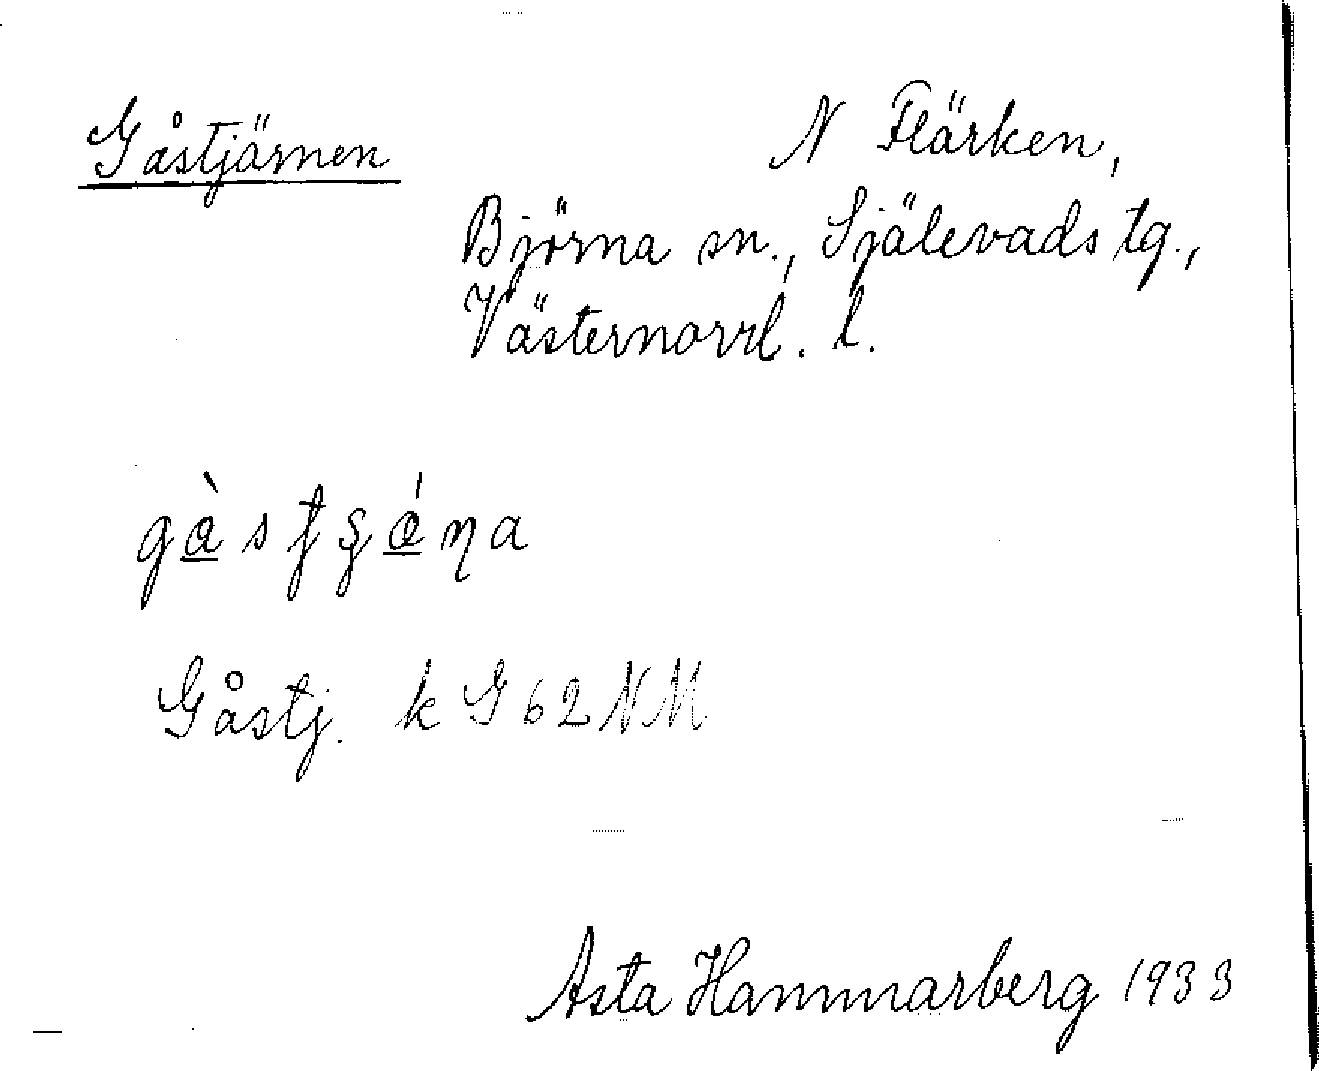 Gåstjärnen
N Flärken,
Björna sn., Själevads tg.,
Västernorrl. l.
Gåstj. k G 62 NM
Asta Hammarberg 1933